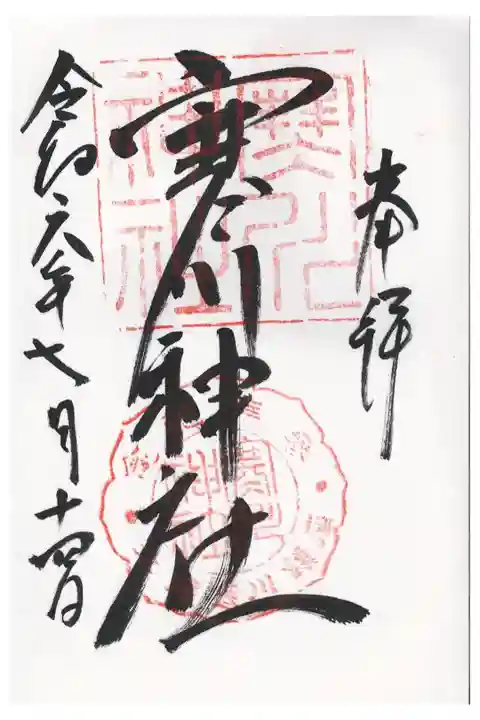 奉拝
寒川神社
令和六年七月十四日